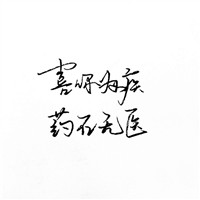 喜你为疾
药石无医